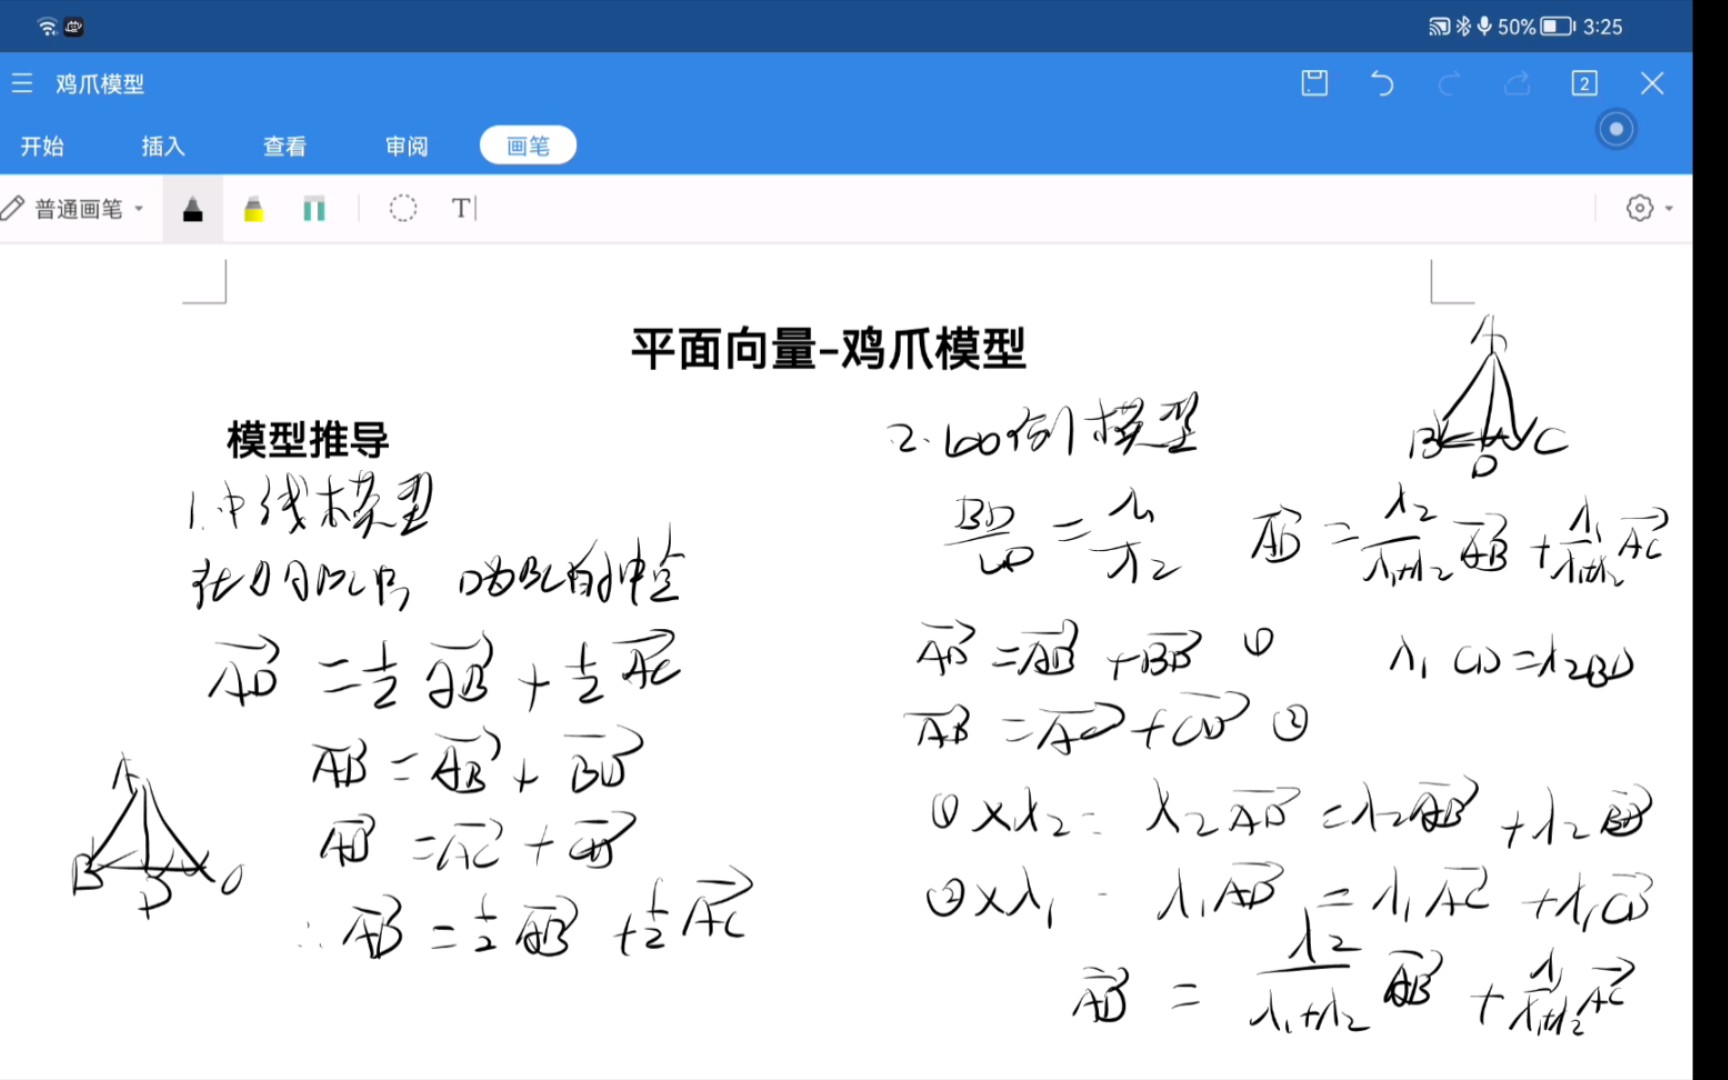 50% 3:25
鸡爪模型
2
开始 插入 查看 审阅 画笔
普通画笔
T
平面向量-鸡爪模型
模型推导
1.中线模型
D为BC的中点
AD = 1/2 AB + 1/2 AC
AD = AB + BD
AD = AC + CD
∴ AD = 1/2 AB + 1/2 AC
A
B
D
C
2.比例模型
A
B
D
C
BD/CD = λ1/λ2 AD = λ2/(λ1+λ2) AB + λ1/(λ1+λ2) AC
AD = AB + BD ① λ1 CD = λ2 BD
AD = AC + CD ②
① × λ2 = λ2 AD = λ2 AB + λ2 BD
② × λ1 - λ1 AD = λ1 AC + λ1 CD
AD = λ2/(λ1+λ2) AB + λ1/(λ1+λ2) AC